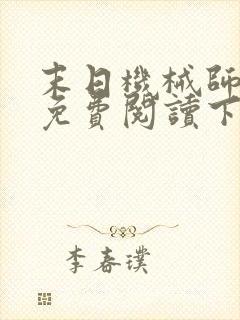 末日機械師
免費閱讀下
李春璞